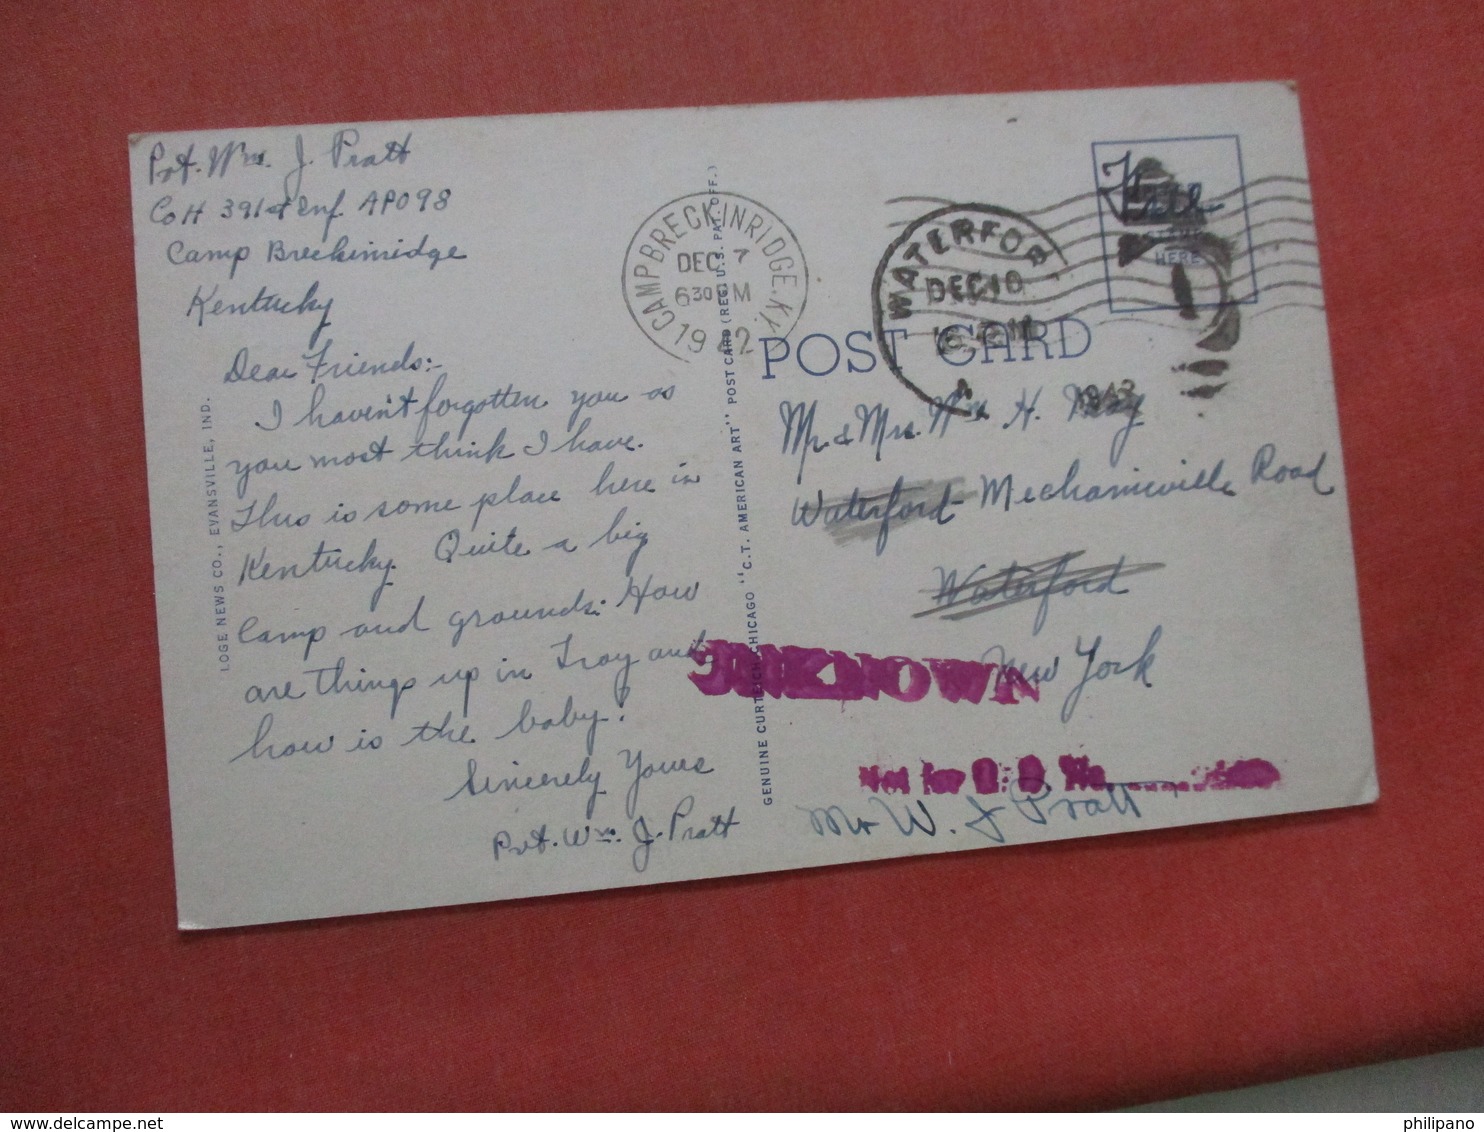 Pvt. Wm. J. Pratt
Co H 391st Inf. APO 98
Camp Breckinridge
Kentucky
Dear Friends:-
I haven't forgotten you as
you most think I have.
This is some place here in
Kentucky. Quite a big
Camp and grounds. How
are things up in Troy and
how is the baby?
Sincerely Yours
Pvt. Wm. J. Pratt
LOGE NEWS CO., EVANSVILLE, IND.
GENUINE CURTEICH, CHICAGO "C.T. AMERICAN ART" POST CARD (REG. U.S. PAT. OFF.)
CAMP BRECKINRIDGE. KY.
DEC 7
6 30 PM
1942
WATERFORD
DEC 10
Free
HERE
POST CARD
Mr. & Mrs. Wm H.
Waterford Mechanicville Road
Waterford
New York
UNKNOWN
Not for
Mr W. J Pratt
philipano